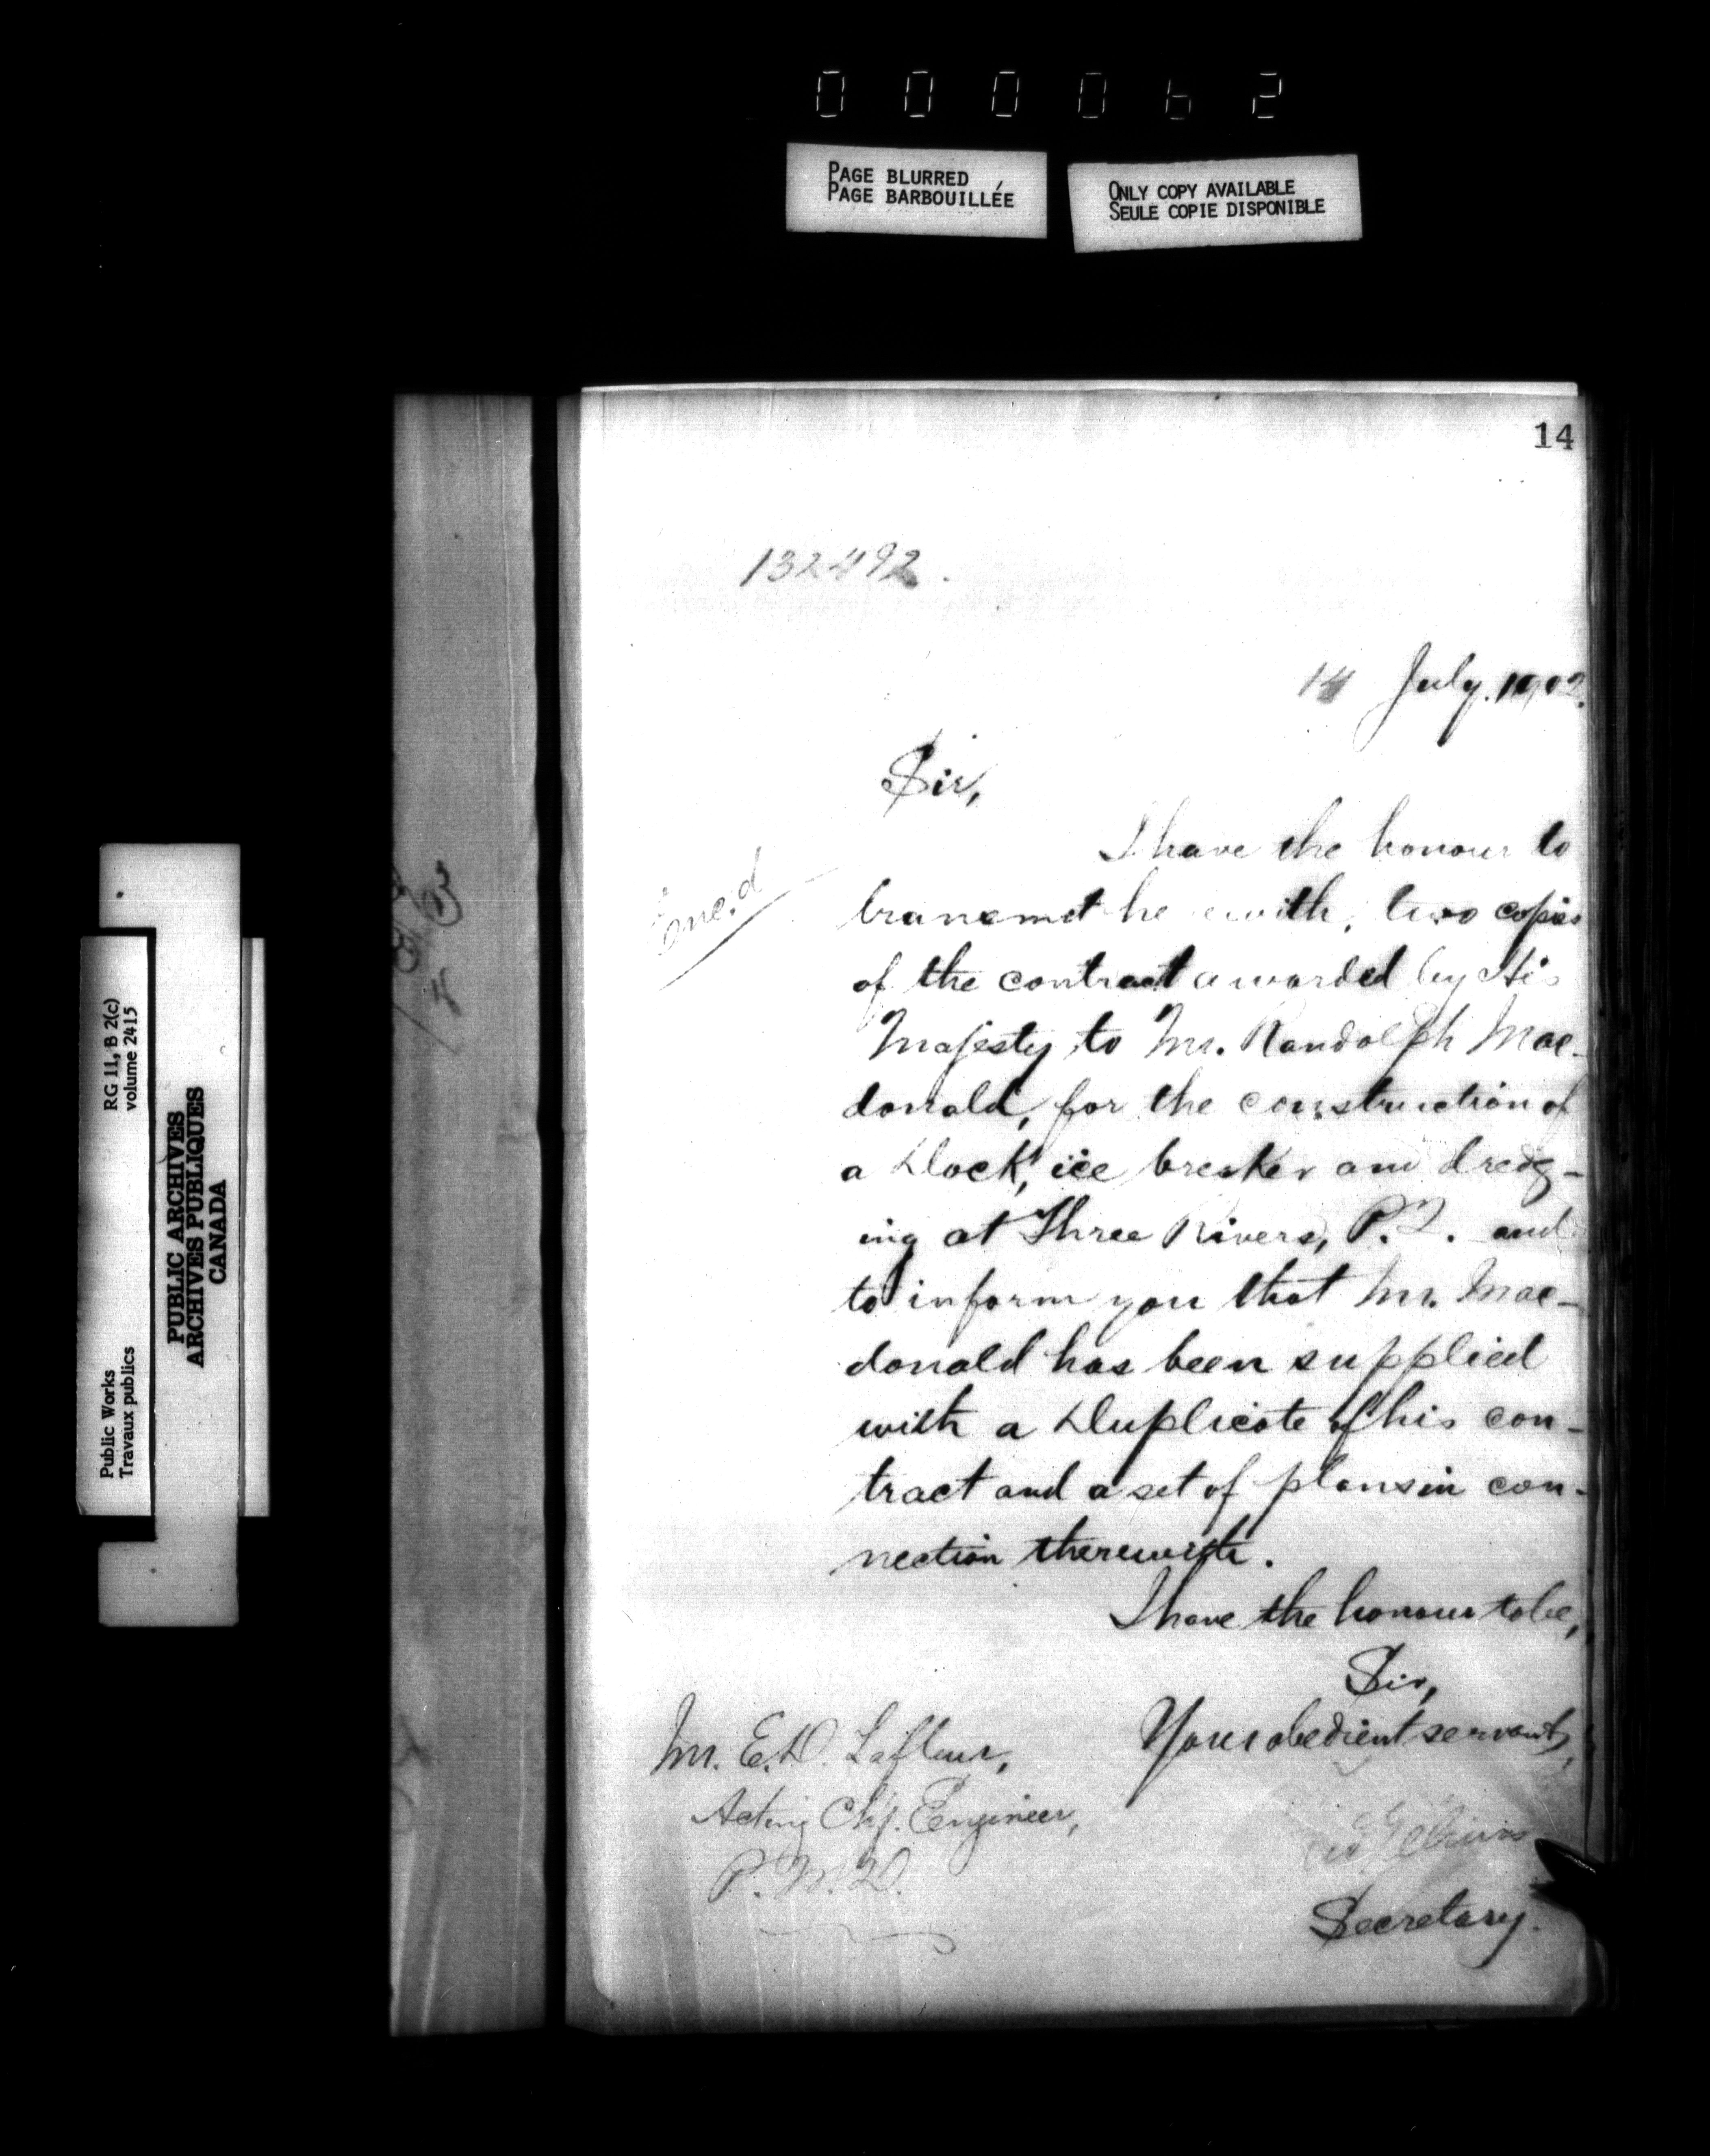 000062
PAGE BLURRED
PAGE BARBOUILLÉE
ONLY COPY AVAILABLE
SEULE COPIE DISPONIBLE
RG 11, B 2(c)
volume 2415
Public Works
Travaux publics
PUBLIC ARCHIVES
ARCHIVES PUBLIQUES
CANADA
14
132492.
14 July. 1902.
Sir,
I have the honour to
Enc.d
transmit herewith, two copies
of the contract awarded by His
Majesty to Mr. Randolph Mac-
donald, for the construction of
a Dock, ice breaker and dredg-
ing at Three Rivers, P.Q. and
to inform you that Mr. Mac-
donald has been supplied
with a Duplicate of his con-
tract and a set of plans in con-
nection therewith.
I have the honour to be,
Sir,
Your obedient servant,
Mr. E.D. Lafleur,
Acting Chf. Engineer,
P.W.D.
Secretary.